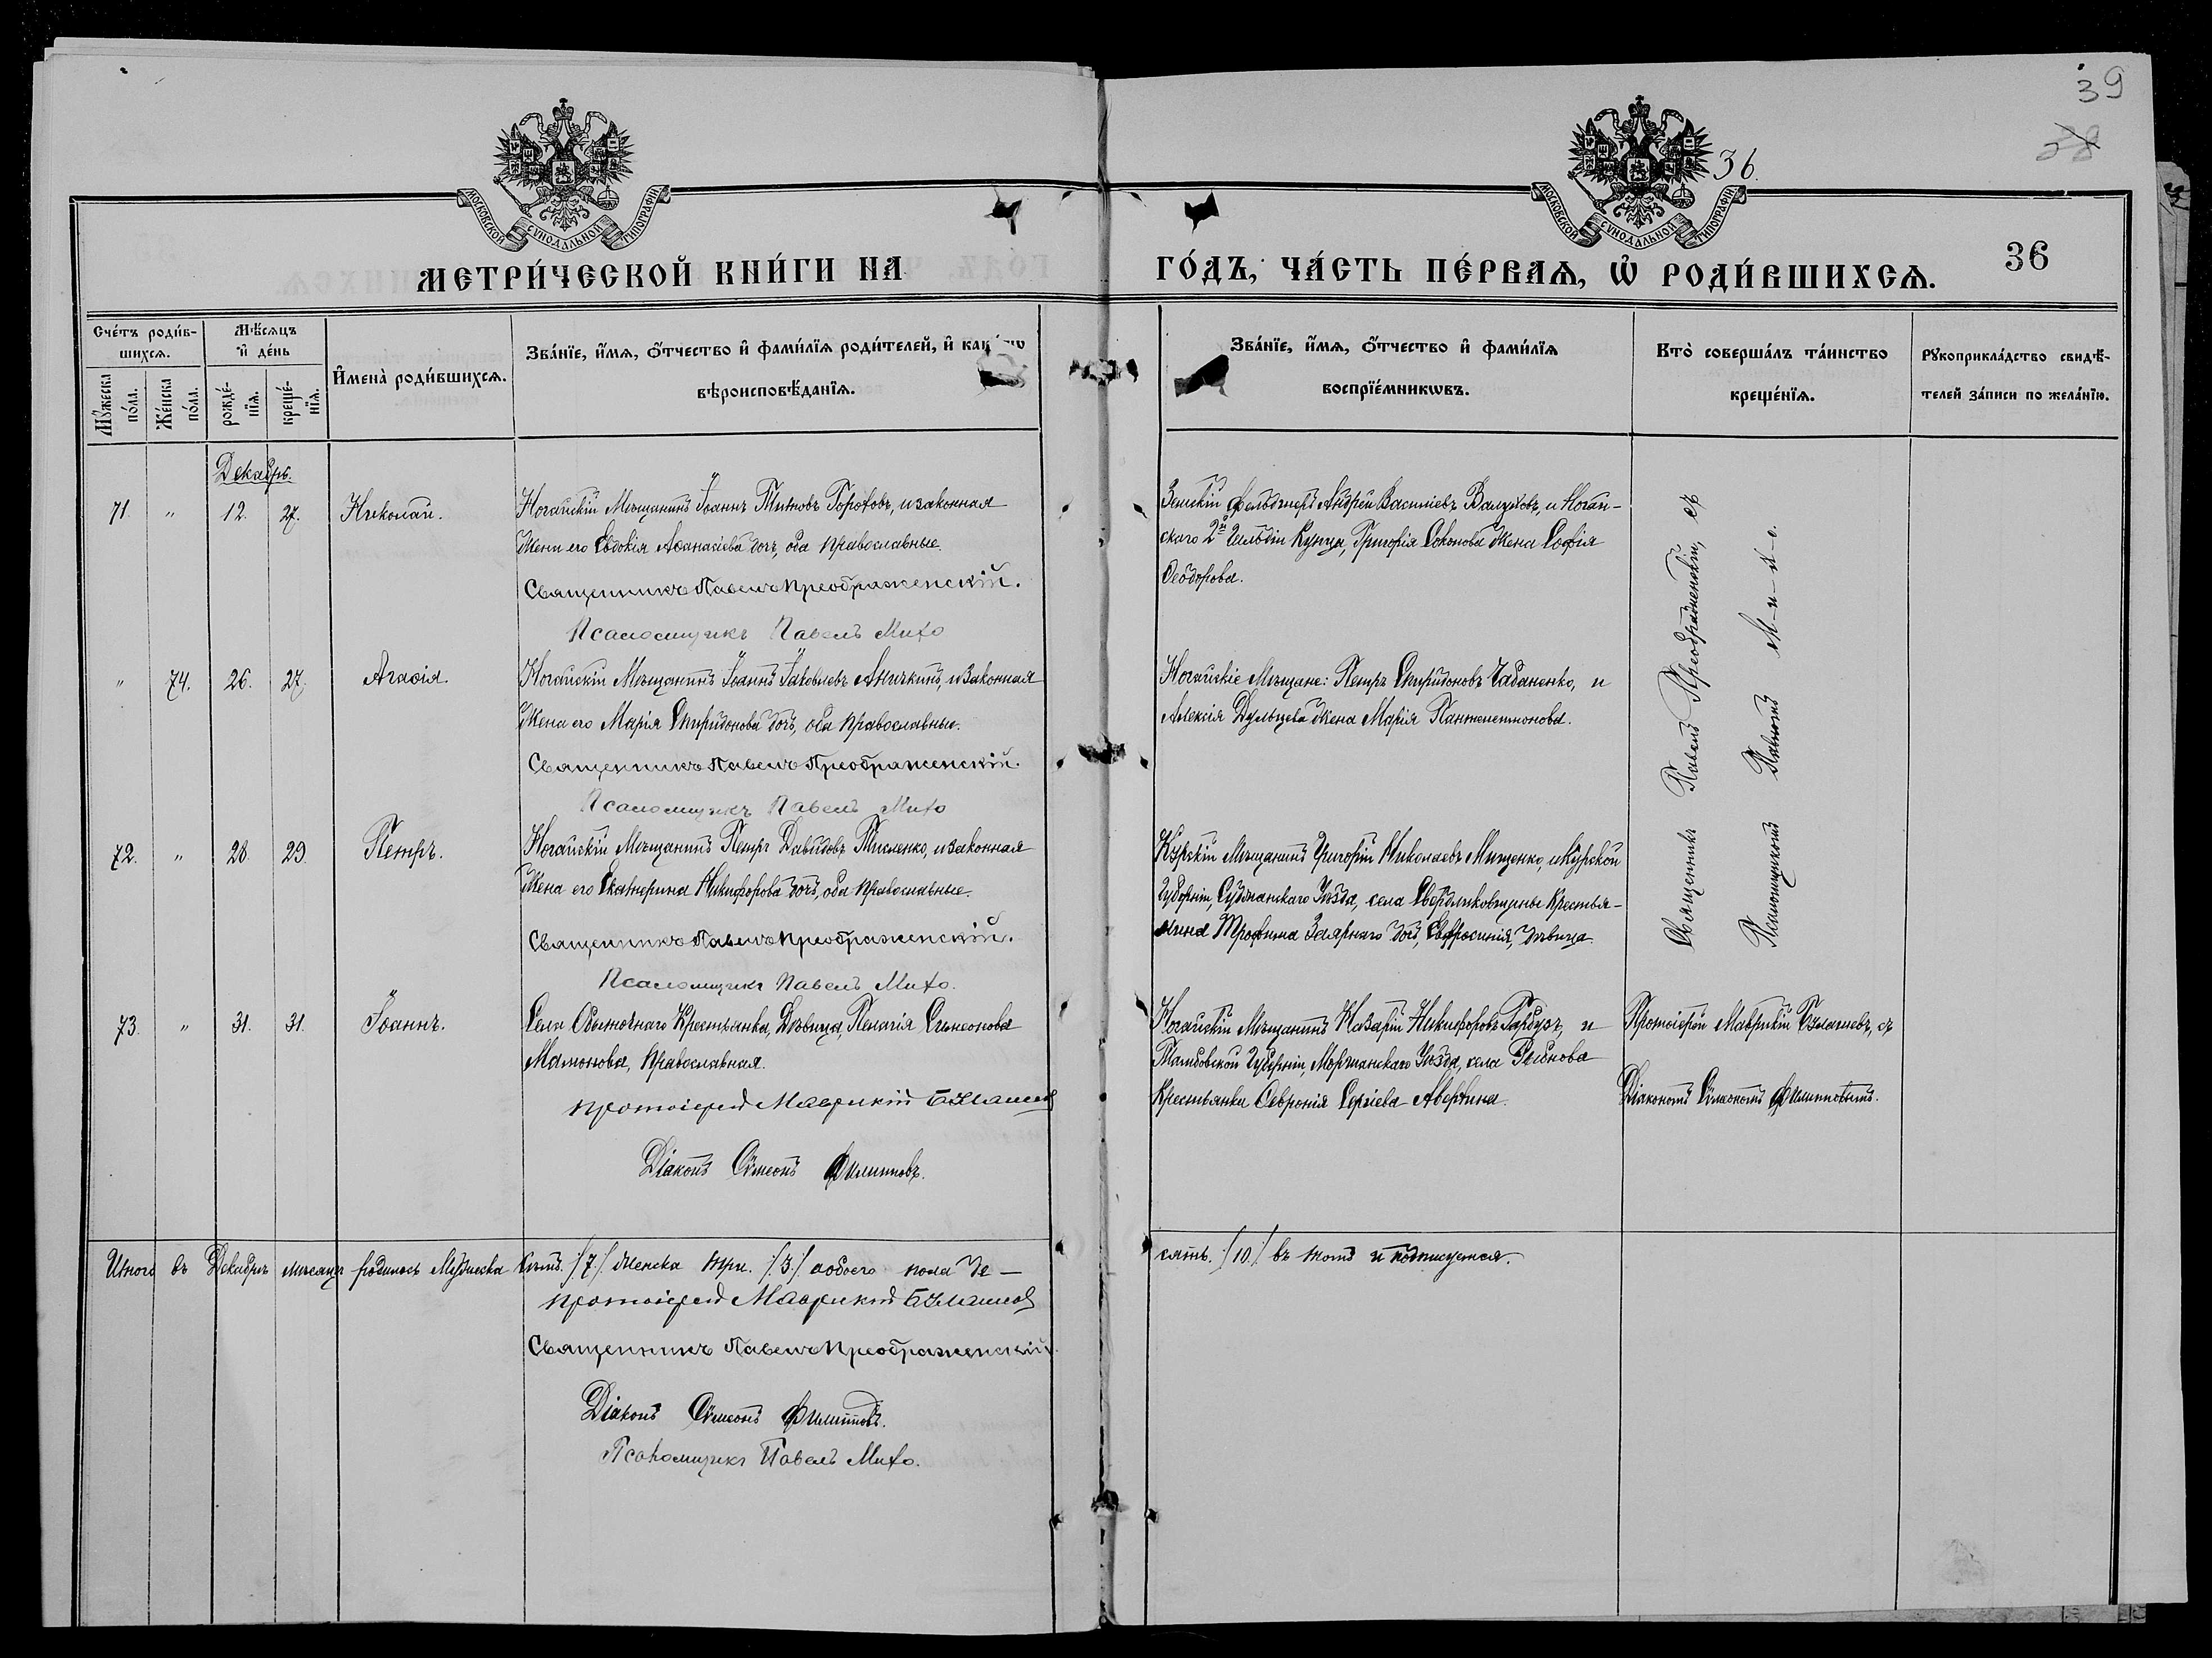 39
38
36.
МОСКОВСКОЙ СѴНОДАЛЬНОЙ ТИПОГРАФІИ
МОСКОВСКОЙ СѴНОДАЛЬНОЙ ТИПОГРАФІИ
МЕТРИ́ЧЕСКОЙ КНИ́ГИ НА ГО́ДЪ, ЧА́СТЬ ПЕ́РВАЯ, Ѡ҆ РОДИ́ВШИХСЯ.
36
Сче́тъ роди́в-
шихся.
Му́жеска по́ла.
Же́нска по́ла.
Мѣ́сяцъ и҆ де́нь
рожде́-
нїя.
креще́-
нїя.
И҆мена̀ роди́вшихся.
Зва́нїе, и҆́мя, ѻ҆́тчество и҆ фами́лїя роди́телей, и҆
вѣроисповѣ́данїя.
Зва́нїе, и҆́мя, ѻ҆́тчество и҆ фами́лїя
воспрїе́мникѡвъ.
Кто̀ соверша́лъ та́инство
креще́нїя.
Рꙋкоприкла́дство свидѣ́-
телей за́писи по жела́нїю.
Декабрь.
71. " 12. 27. Николай.
Ногайскій Мѣщанинъ Іоаннъ Титовъ Гороховъ, и законная
Жена его Евдокія Аѳанасіева дочь, оба православные.
Священникъ Павелъ Преображенскій.
Псаломщикъ Павелъ Михо
Земскій фельдшеръ Андрей Васильевъ и Ногай-
скаго 2й Гильдіи Купца, Григорія Соконова Жена Софія
Ѳеодорова.
Священникъ Павелъ Преображенскій, съ
Псаломщикомъ Павломъ М-и-х-о.
" 74. 26. 27. Агаѳія.
Ногайскій Мѣщанинъ Іоаннъ Іаковлевъ Аничкинъ, и законная
Жена его Марія Спиридонова дочь, оба православные.
Священникъ Павелъ Преображенскій.
Псаломщикъ Павелъ Михо
Ногайскіе Мѣщане: Петръ Спиридоновъ Чабаненко, и
Алексія Дульцева Жена Марія Пантелеимонова.
72. " 28. 29. Петръ.
Ногайскій Мѣщанинъ Петръ Давидовъ Тисленко, и законная
Жена его Екатерина Никифорова дочь, оба православные.
Священникъ Павелъ Преображенскій.
Псаломщикъ Павелъ Михо.
Курскій Мѣщанинъ Григорій Николаевъ Мищенко, и Курской
Губерніи, Суджанскаго Уѣзда, села Свердликовщины Крестья-
нина Трофима дочь, Евфросинія, дѣвица.
73. " 31. 31. Іоаннъ.
Села Обиточнаго Крестьянка, Дѣвица, Пелагія Сѵмеонова
Мамонова, Православная.
протоіерей Маврикій Бузлашевъ
Діаконъ Сѵмеонъ Филипповъ.
Ногайскій Мѣщанинъ Назарій Никифоровъ Гарбузъ, и
Тамбовской Губерніи, Моршанскаго Уѣзда, села
Крестьянка Ѳевронія Сергіева Аверкина.
Протоіерей Маврикій съ
Діакономъ Сѵмеономъ Филипповымъ.
Итого въ Декабрѣ мѣсяцѣ родилось Мужеска семь /7/. Женска три. /3/. обоего пола де-
сять. /10/ въ томъ и подписуемся.
протоіерей Маврикій Бузлашевъ
Священникъ Павелъ Преображенскій.
Діаконъ Сѵмеонъ Филипповъ.
Псаломщикъ Павелъ Михо.